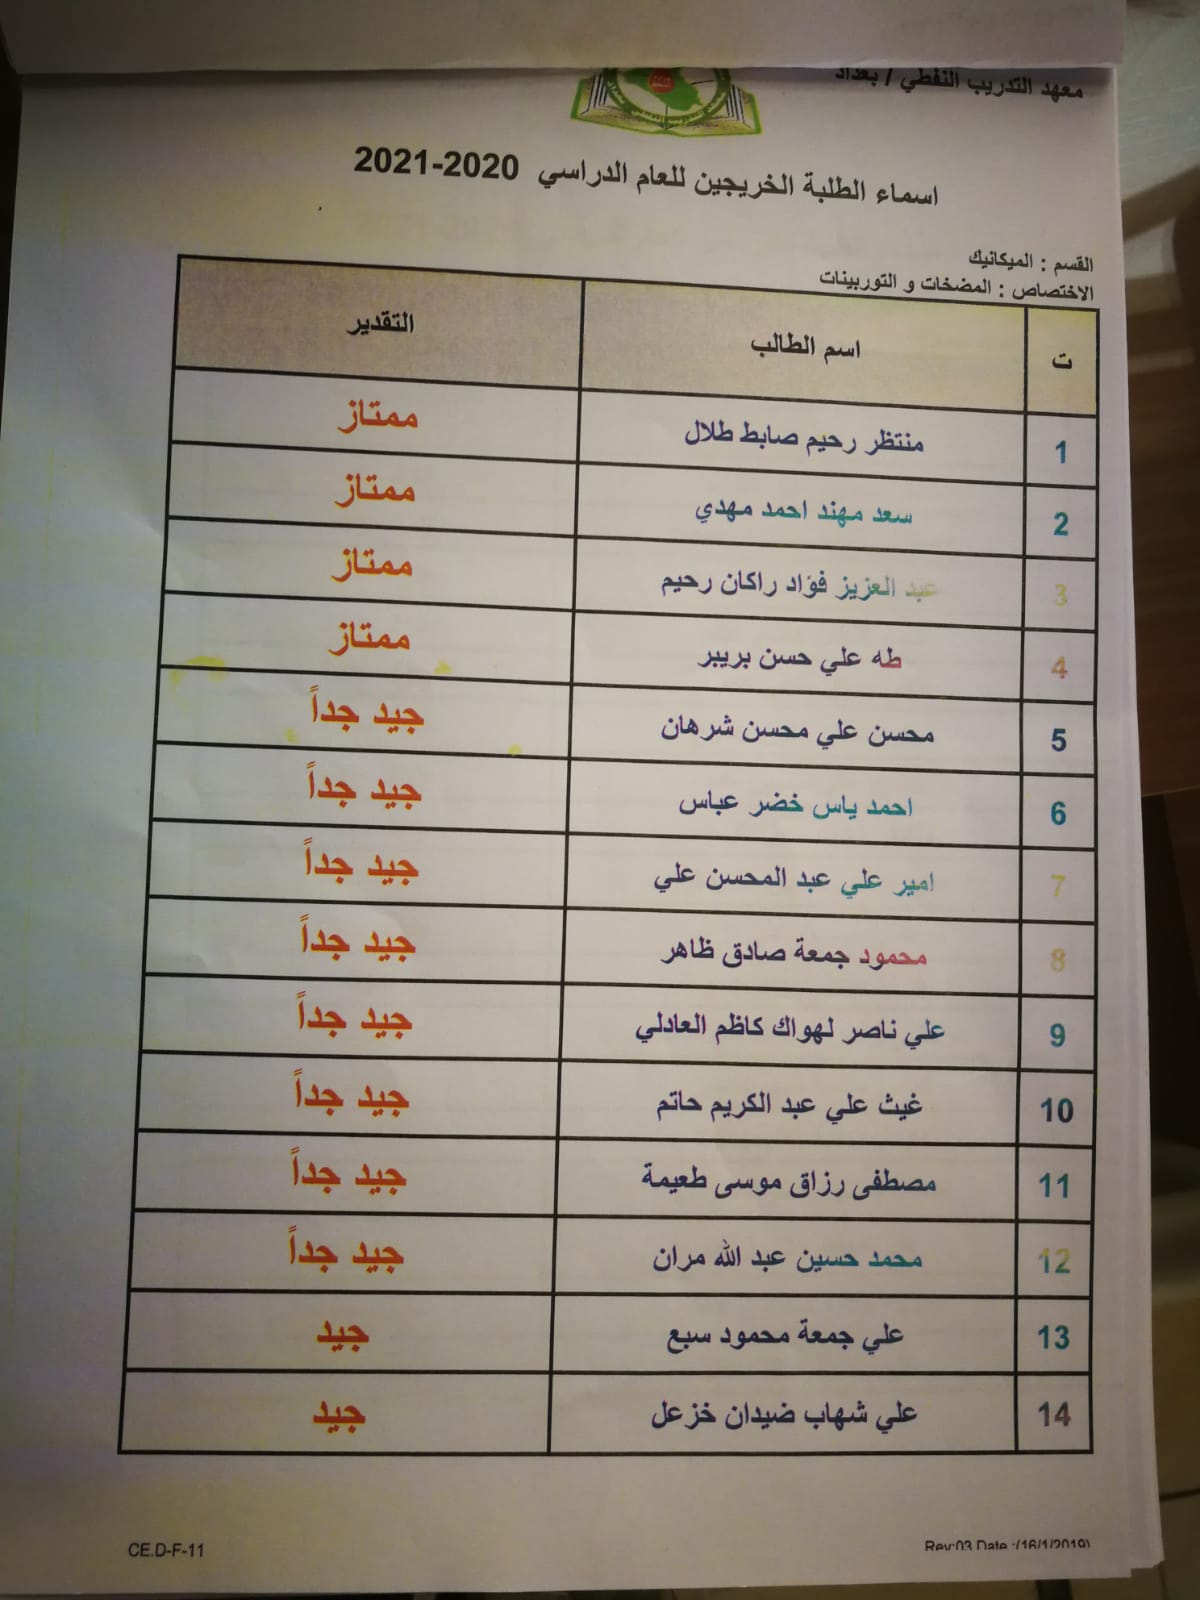 معهد التدريب النفطي / بغداد
اسماء الطلبة الخريجين للعام الدراسي 2020-2021
القسم : الميكانيك
الاختصاص : المضخات و التوربينات
ت اسم الطالب التقدير
1 منتظر رحيم صابط طلال ممتاز
2 سعد مهند احمد مهدي ممتاز
3 عبد العزيز فؤاد راكان رحيم ممتاز
4 طه علي حسن بريبر ممتاز
5 محسن علي محسن شرهان جيد جداً
6 احمد ياس خضر عباس جيد جداً
7 امير علي عبد المحسن علي جيد جداً
8 محمود جمعة صادق ظاهر جيد جداً
9 علي ناصر لهواك كاظم العادلي جيد جداً
10 غيث علي عبد الكريم حاتم جيد جداً
11 مصطفى رزاق موسى طعيمة جيد جداً
12 محمد حسين عبد الله مران جيد جداً
13 علي جمعة محمود سبع جيد
14 علي شهاب ضيدان خزعل جيد
CE.D-F-11 Rev:03 Date :(16/1/2019)